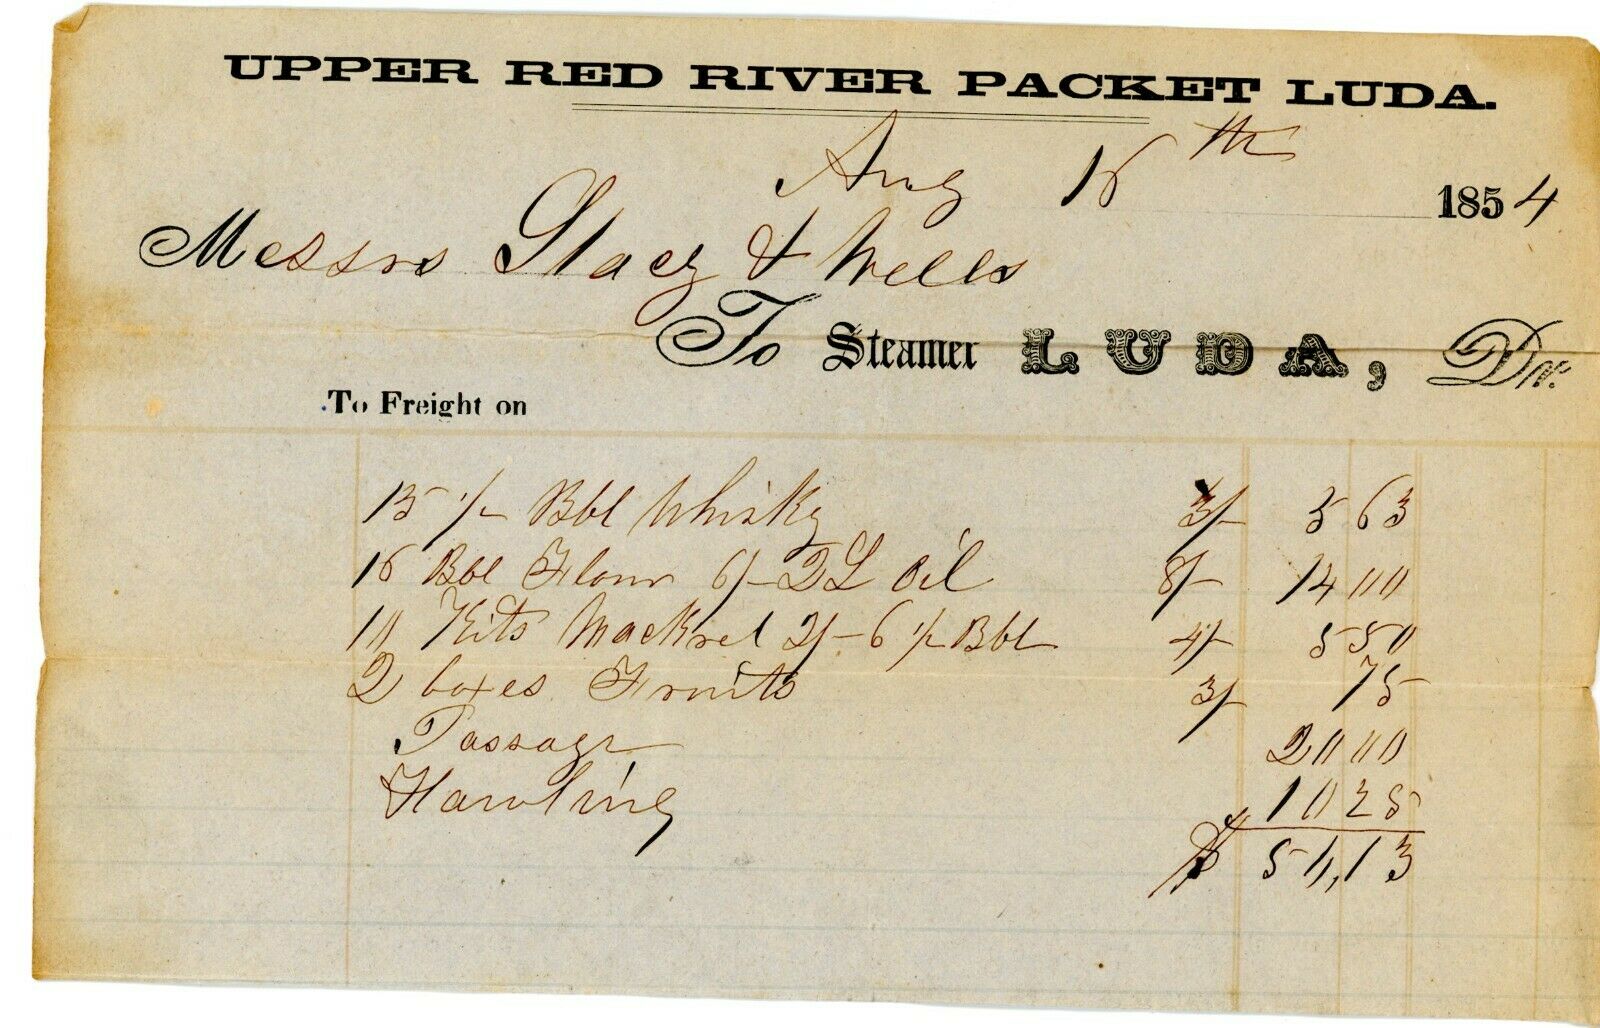 UPPER RED RIVER PACKET LUDA.
Aug 16th 1854
Messrs Stacy & Wells
To Steamer LUDA, Dr.
To Freight on
15 1/2 Bbl Whisky 3/- 5 63
16 Bbl Flour 6/- 2 Oil 8/- 14 00
10 Kits Mackrel 2/- 6 1/2 Bbl 4/- 5 50
2 boxes Fruits 3/- 75
Passage 20 00
Hawling 10 25
$ 56,13